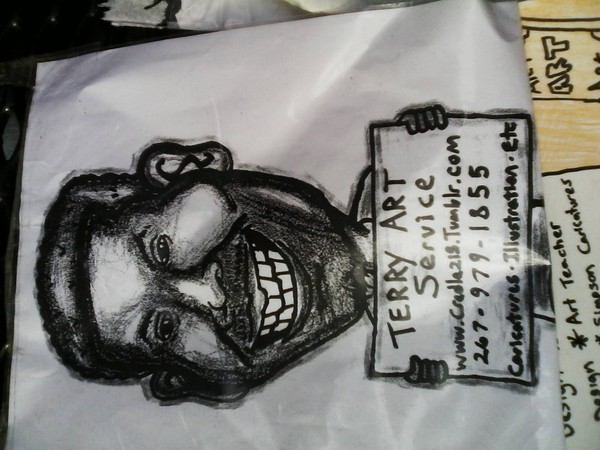 TERRY ART
Service
www.Cradle218.Tumblr.com
267-979-1855
Caricatures·Illustration·Etc
ART
Design
* Art Teacher
Design
* Simpson Caricatures